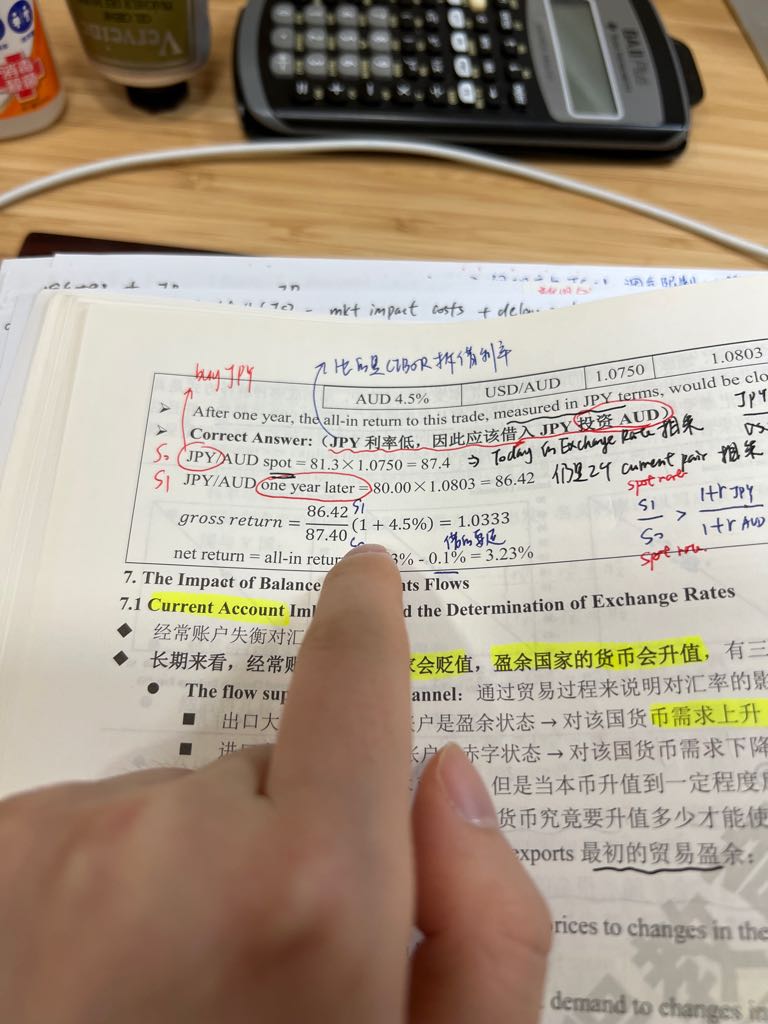 BAII Plus
mkt impact costs + delay
buy JPY
AUD 4.5% USD/AUD 1.0750 1.0803
➢ After one year, the all-in return to this trade, measured in JPY terms, would be clo
➢ Correct Answer: (JPY 利率低,因此应该借入 JPY 投资 AUD)
S0 JPY/AUD spot = 81.3×1.0750 = 87.4
S1 JPY/AUD one year later = 80.00×1.0803 = 86.42
gross return = 86.42/87.40 (1 + 4.5%) = 1.0333
S1
spot rate
S1/S0 > 1+r JPY/1+r AUD
spot rate
net return = all-in retur 3% - 0.1% = 3.23%
7. The Impact of Balance nts Flows
7.1 Current Account Im d the Determination of Exchange Rates
◆ 经常账户失衡对汇
◆ 长期来看,经常账 家会贬值,盈余国家的货币会升值,有三
● The flow sup annel: 通过贸易过程来说明对汇率的影
■ 出口大 户是盈余状态→对该国货币需求上升
■ 进 账户 赤字状态→对该国货币需求下降
但是当本币升值到一定程度
货币究竟要升值多少才能使
exports 最初的贸易盈余:
rices to changes in the
demand to changes in